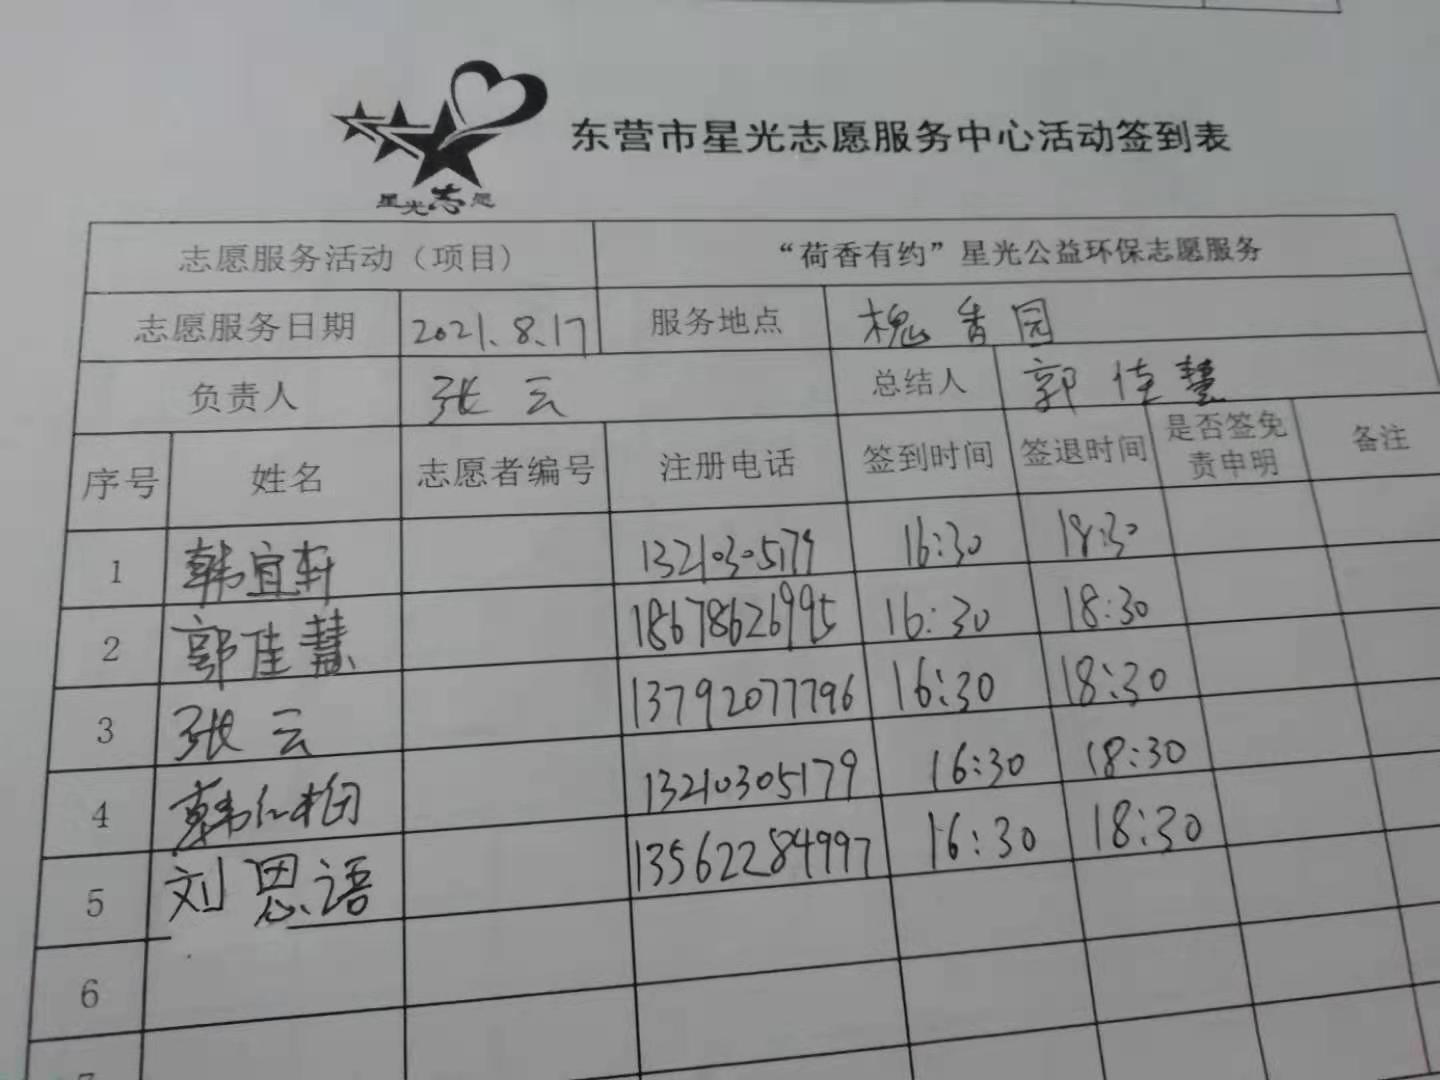 东营市星光志愿服务中心活动签到表
星光志愿
志愿服务活动（项目） “荷香有约”星光公益环保志愿服务
志愿服务日期 2021.8.17 服务地点 槐香园
负责人 张云 总结人 郭佳慧
序号 姓名 志愿者编号 注册电话 签到时间 签退时间 是否签免责申明 备注
1 韩宜轩 13210305179 16:30 18:30
2 郭佳慧 18678626995 16:30 18:30
3 张云 13792077796 16:30 18:30
4 韩 13210305179 16:30 18:30
5 刘恩语 13562284997 16:30 18:30
6